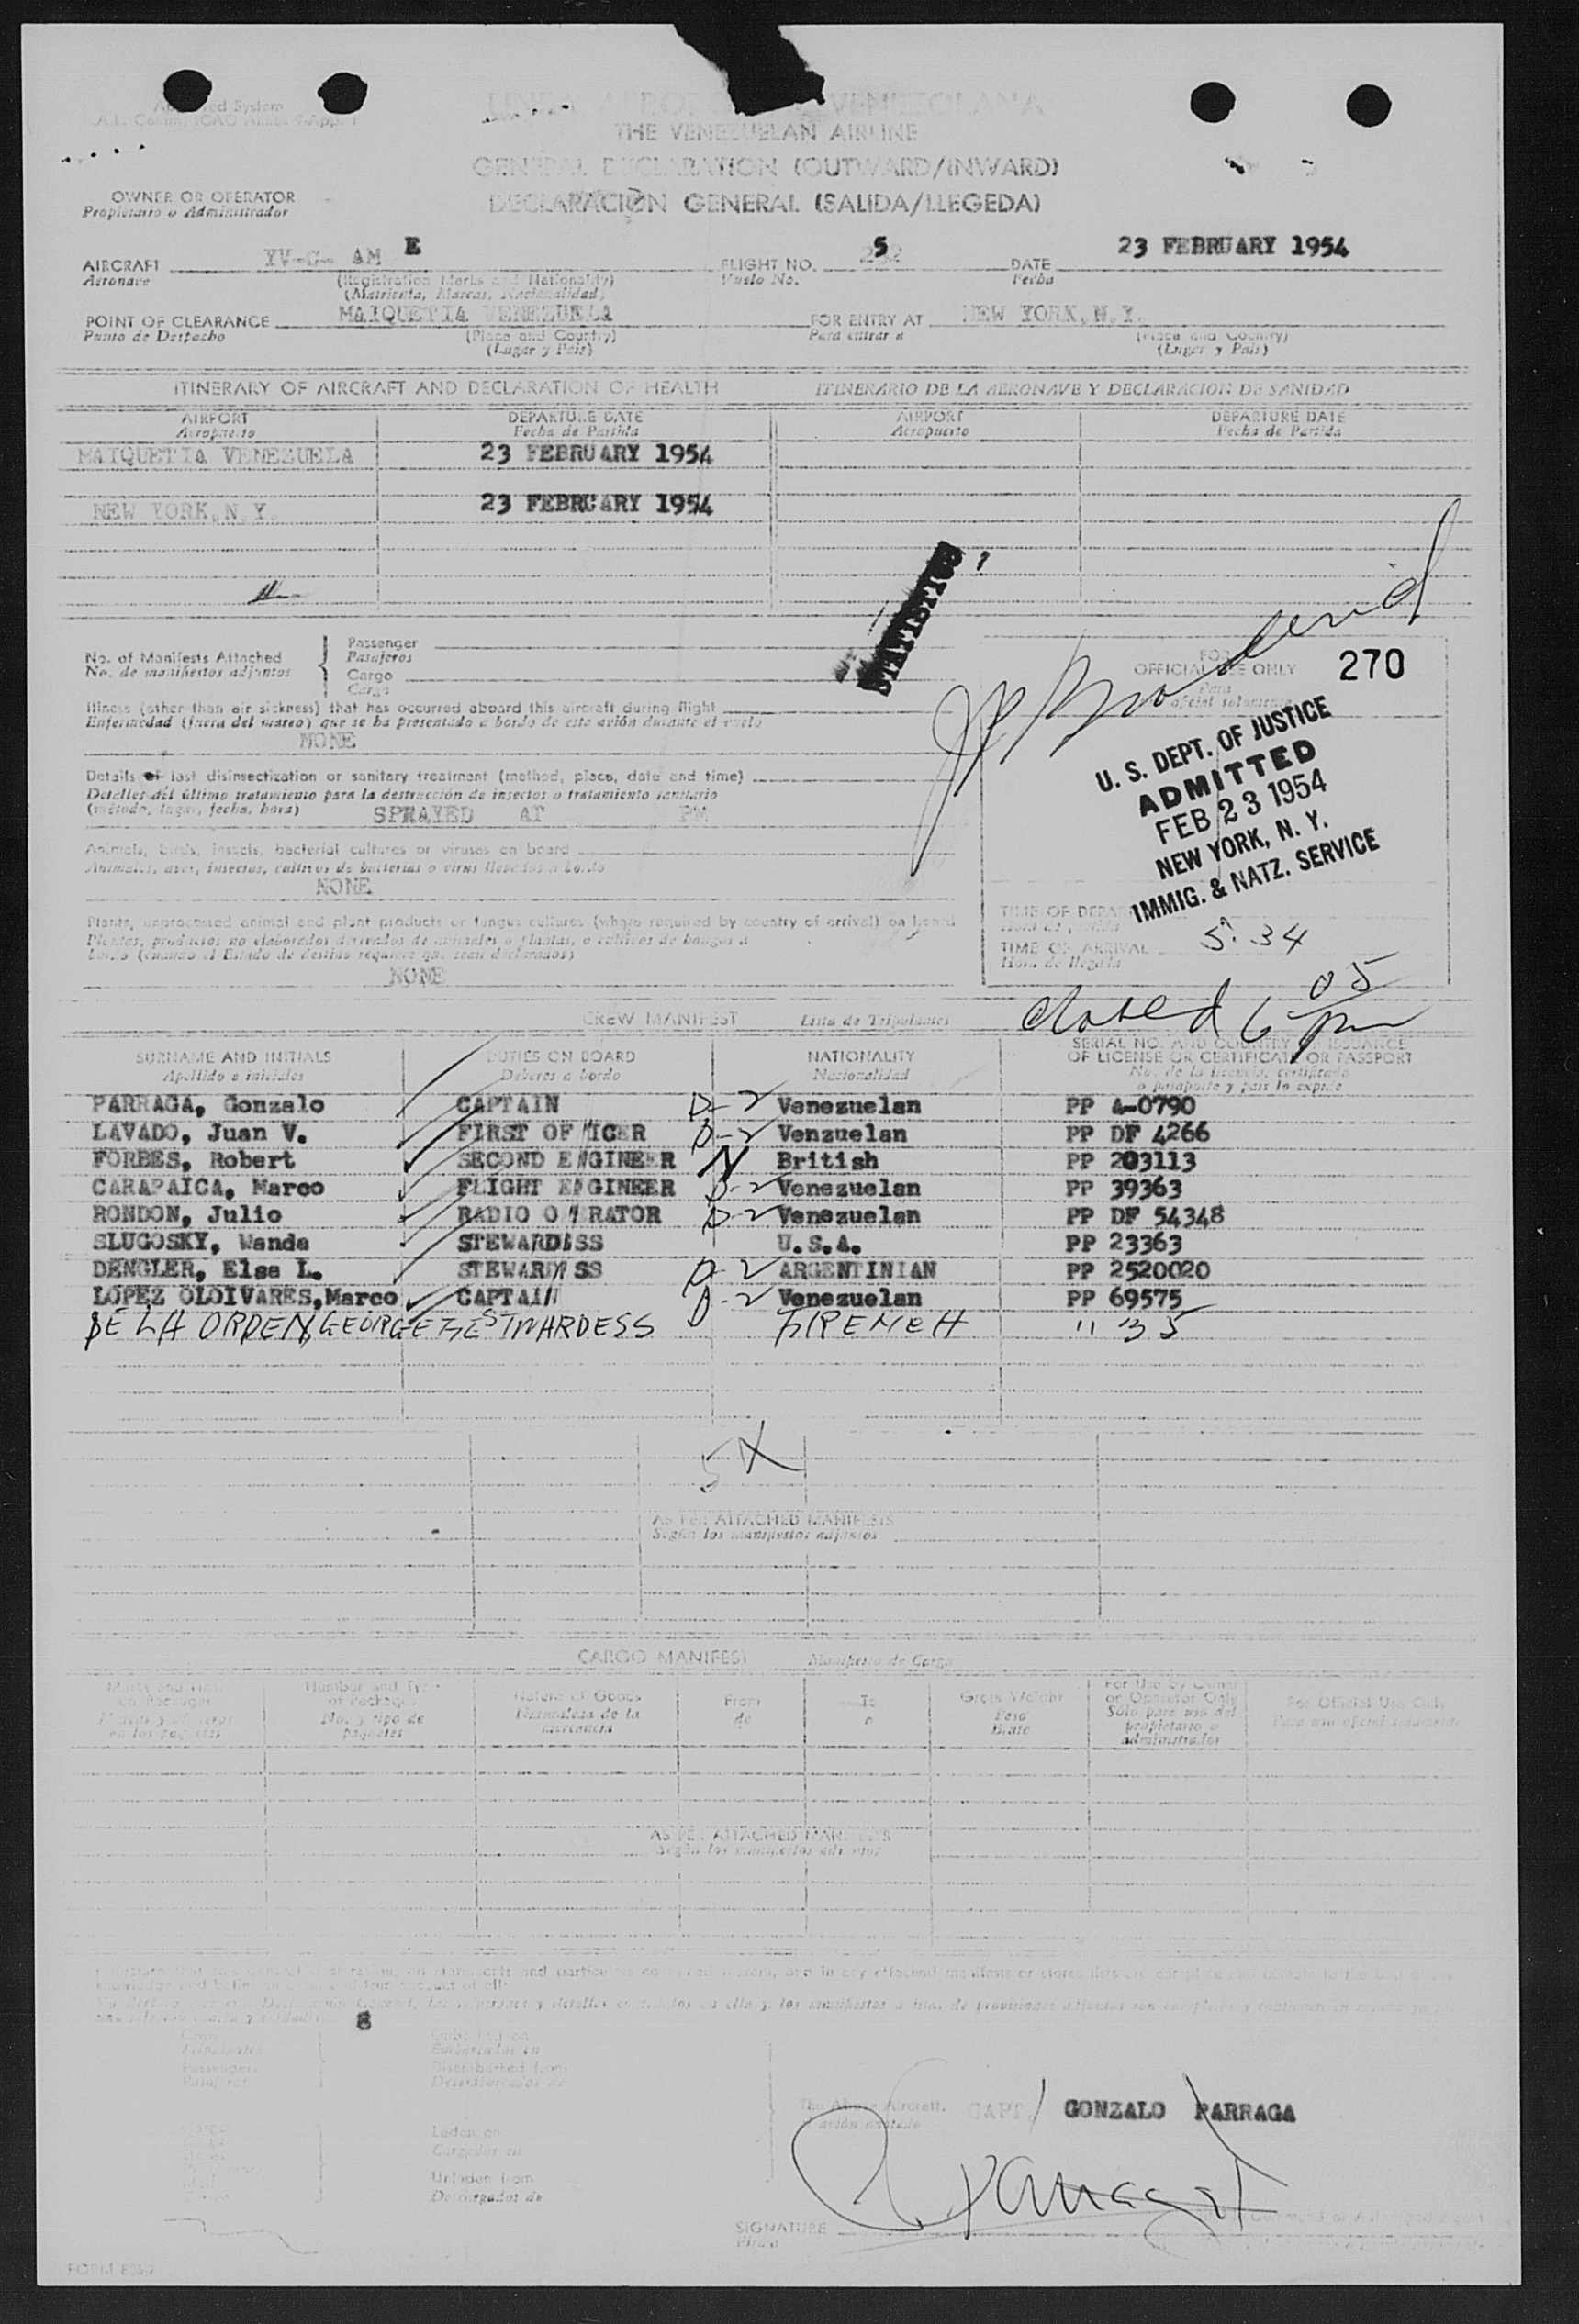 THE VENEZUELAN AIRLINE
GENERAL DECLARATION (OUTWARD/INWARD)
DECLARACIÓN GENERAL (SALIDA/LLEGEDA)
OWNER OR OPERATOR
Propietario o Administrador
AIRCRAFT YV-C- AM E FLIGHT NO. 5 DATE 23 FEBRUARY 1954
Aeronave (Registration Marks and Nationality) Vuelo No. Fecha
(Matricula, Marcas, Nacionalidad)
POINT OF CLEARANCE MAIQUETIA VENEZUELA FOR ENTRY AT NEW YORK, N.Y.
Punto de Despacho (Place and Country) Para entrar a (Place and Country)
(Lugar y País) (Lugar y País)
ITINERARY OF AIRCRAFT AND DECLARATION OF HEALTH ITINERARIO DE LA AERONAVE Y DECLARACION DE SANIDAD
AIRPORT DEPARTURE DATE AIRPORT DEPARTURE DATE
Aeropuerto Fecha de Partida Aeropuerto Fecha de Partida
MAIQUETIA VENEZUELA 23 FEBRUARY 1954
NEW YORK, N.Y. 23 FEBRUARY 1954
STATISTICS
No. of Manifests Attached Passenger
No. de manifiestos adjuntos Pasajeros
Cargo
Carga
FOR
OFFICIAL USE ONLY 270
Para
oficial solamente
Illness (other than air sickness) that has occurred aboard this aircraft during flight
Enfermedad (fuera del mareo) que se ha presentado a bordo de este avión durante el vuelo
NONE
U. S. DEPT. OF JUSTICE
ADMITTED
FEB 23 1954
NEW YORK, N. Y.
IMMIG. & NATZ. SERVICE
Details of last disinsectization or sanitary treatment (method, place, date and time)
Detalles del último tratamiento para la destrucción de insectos o tratamiento sanitario
(método, lugar, fecha, hora) SPRAYED AT PM
Animals, birds, insects, bacterial cultures or viruses on board
Animales, aves, insectos, cultivos de bacterias o virus llevados a bordo
NONE
Plants, unprocessed animal and plant products or fungus cultures (where required by country of arrival) on board
Plantas, productos no elaborados derivados de animales o plantas, o cultivos de hongos a
bordo (cuando el Estado de destino requiere que sean declarados)
NONE
TIME OF
TIME OF ARRIVAL 5:34
Hora de llegada
closed 6 05 pm
CREW MANIFEST Lista de Tripulantes
SURNAME AND INITIALS DUTIES ON BOARD NATIONALITY SERIAL NO. AND COUNTRY OF ISSUANCE
OF LICENSE OR CERTIFICATE OR PASSPORT
Apellido e iniciales Deberes a bordo Nacionalidad No. de la licencia, certificado
o pasaporte y país lo expide
PARRAGA, Gonzalo CAPTAIN D-2 Venezuelan PP A-0790
LAVADO, Juan V. FIRST OFFICER D-2 Venzuelan PP DF 4266
FORBES, Robert SECOND ENGINEER N British PP 203113
CARAPAICA, Marco FLIGHT ENGINEER D-2 Venezuelan PP 39363
RONDON, Julio RADIO OPERATOR D-2 Venezuelan PP DF 54348
SLUGOSKY, Wanda STEWARDESS U.S.A. PP 23363
DENGLER, Else L. STEWARDESS D-2 ARGENTINIAN PP 2520020
LOPEZ OLOIVARES, Marco CAPTAIN D-2 Venezuelan PP 69575
DE LA ORDEN, GEORGETTE STWARDESS FRENCH " 35
AS PER ATTACHED MANIFESTS
Según los manifiestos adjuntos
CARGO MANIFEST Manifiesto de Carga
Nature of Goods From To Gross Weight For Use by Owner
or Operator Only For Official Use Only
No. y tipo de
paquetes
Naturaleza de la
mercancía
de a Peso
Bruto
Sólo para uso del
propietario o
administrador
AS PER ATTACHED MANIFESTS
8
CAPT/ GONZALO PARRAGA
SIGNATURE
Firma